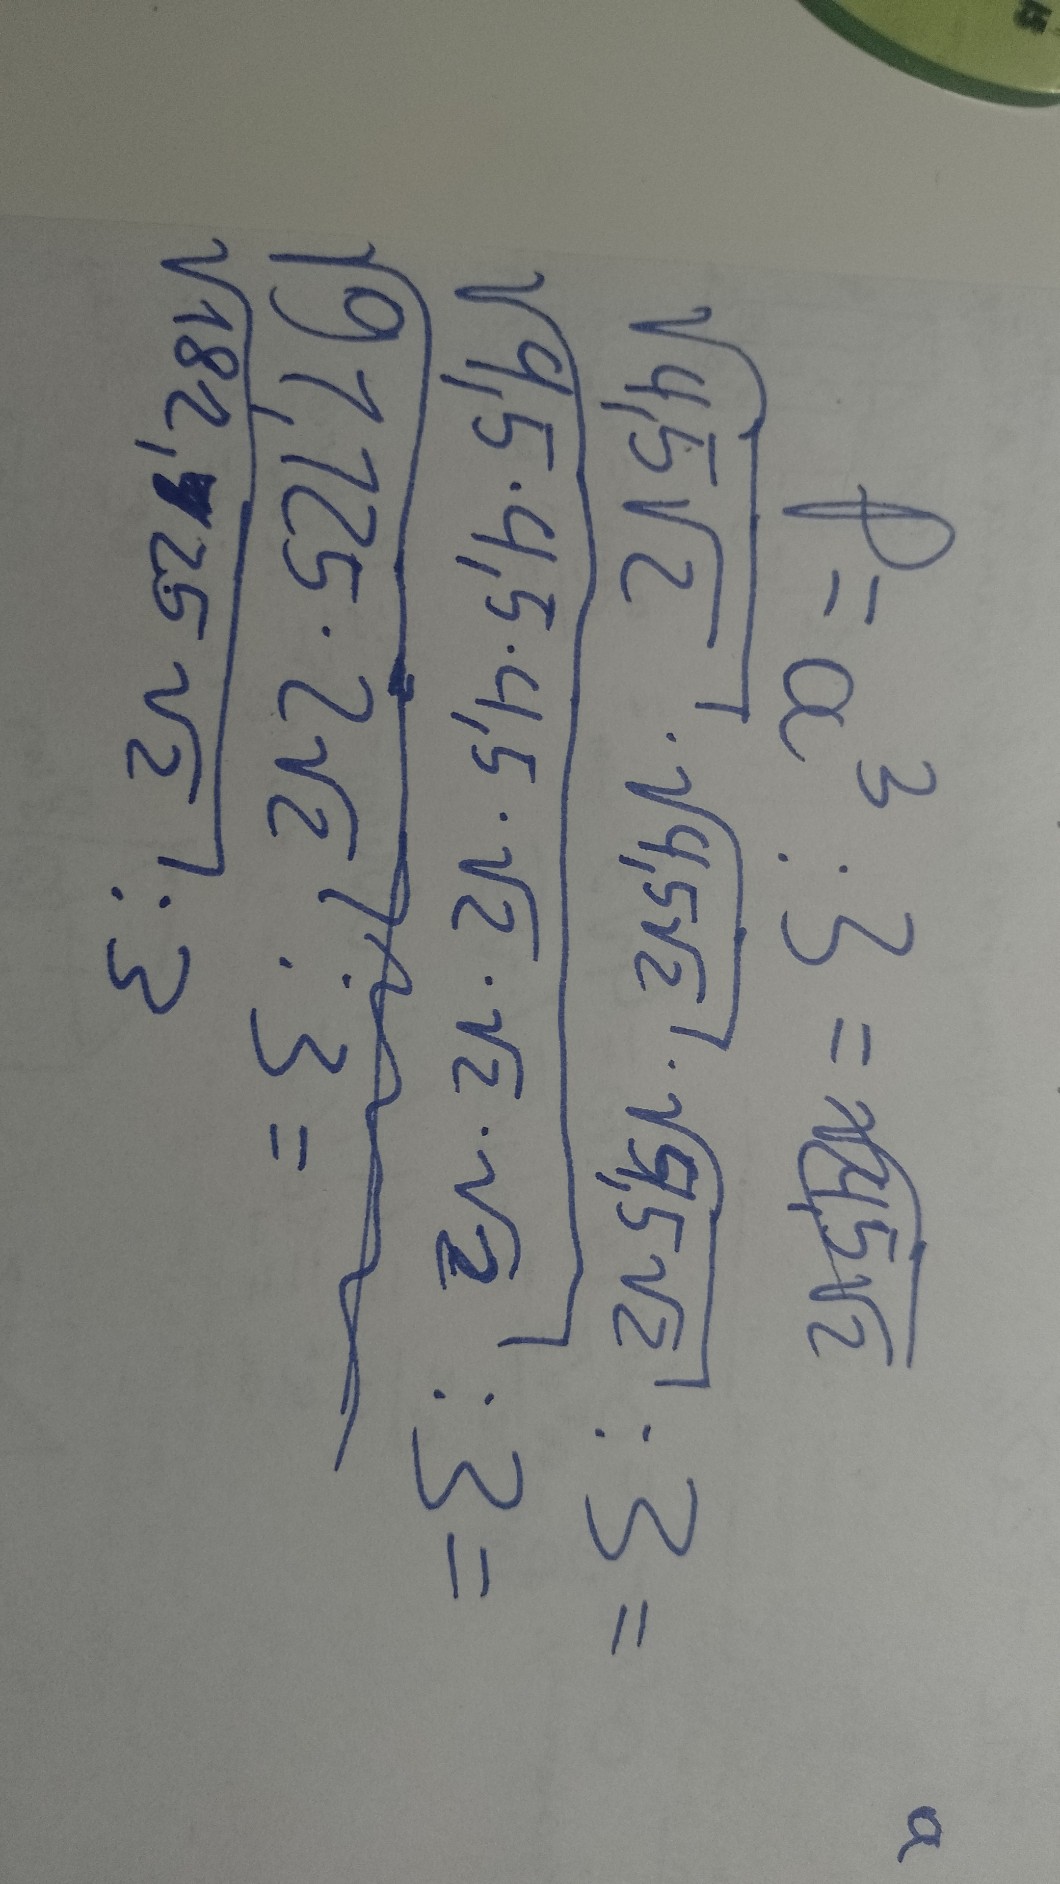 a
P = a³ : 3 = √4,5√2
√4,5√2 · √4,5√2 · √4,5√2 : 3 =
√4,5 · 4,5 · 4,5 · √2 · √2 · √2 : 3 =
√91,125 · 2√2 : 3 =
√182,25√2 : 3